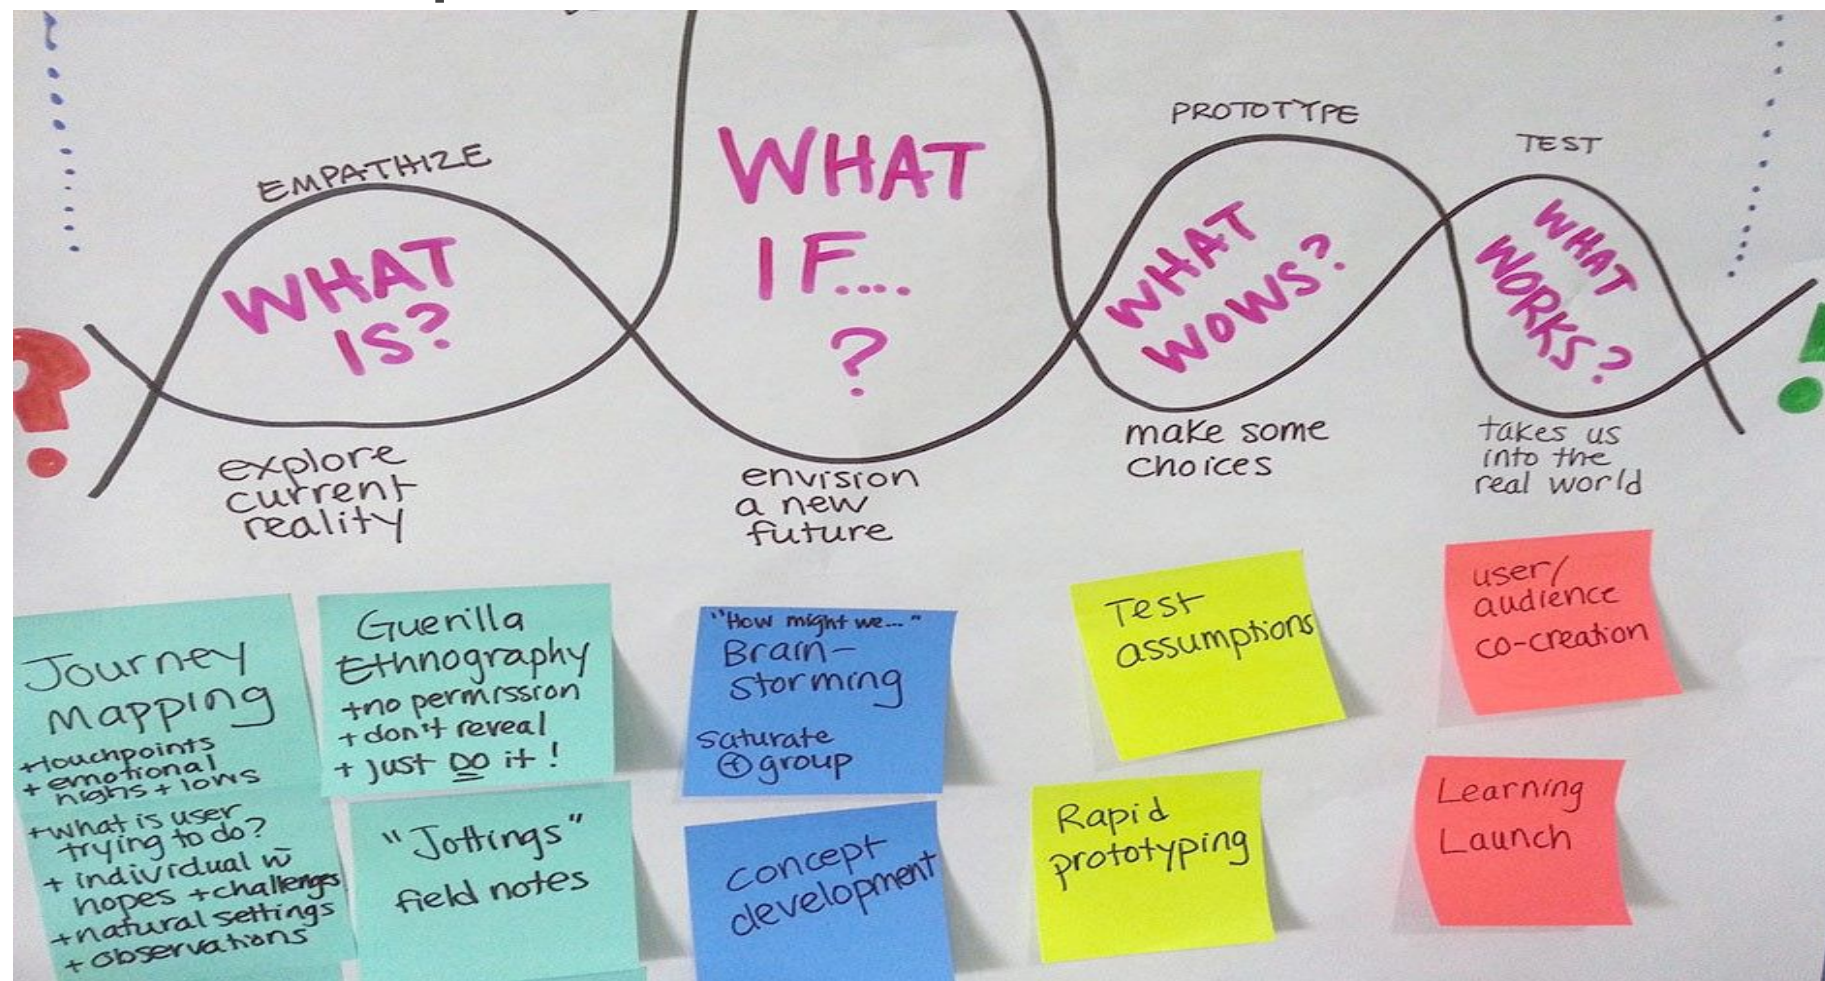 EMPATHIZE
WHAT
IS?
explore
current
reality
WHAT
IF....
?
envision
a new
future
PROTOTYPE
WHAT
WOWS?
make some
choices
TEST
WHAT
WORKS?
takes us
into the
real world
?
!
Journey
Mapping
+touchpoints
+ emotional
highs + lows
+what is user
trying to do?
+ individual w
hopes + challenges
+natural settings
+ observations
Guerilla
Ethnography
+no permission
+ don't reveal
+ just DO it!
"Jottings"
field notes
"How might we..."
Brain-
storming
saturate
+ group
concept
development
Test
assumptions
Rapid
prototyping
user/
audience
co-creation
Learning
Launch